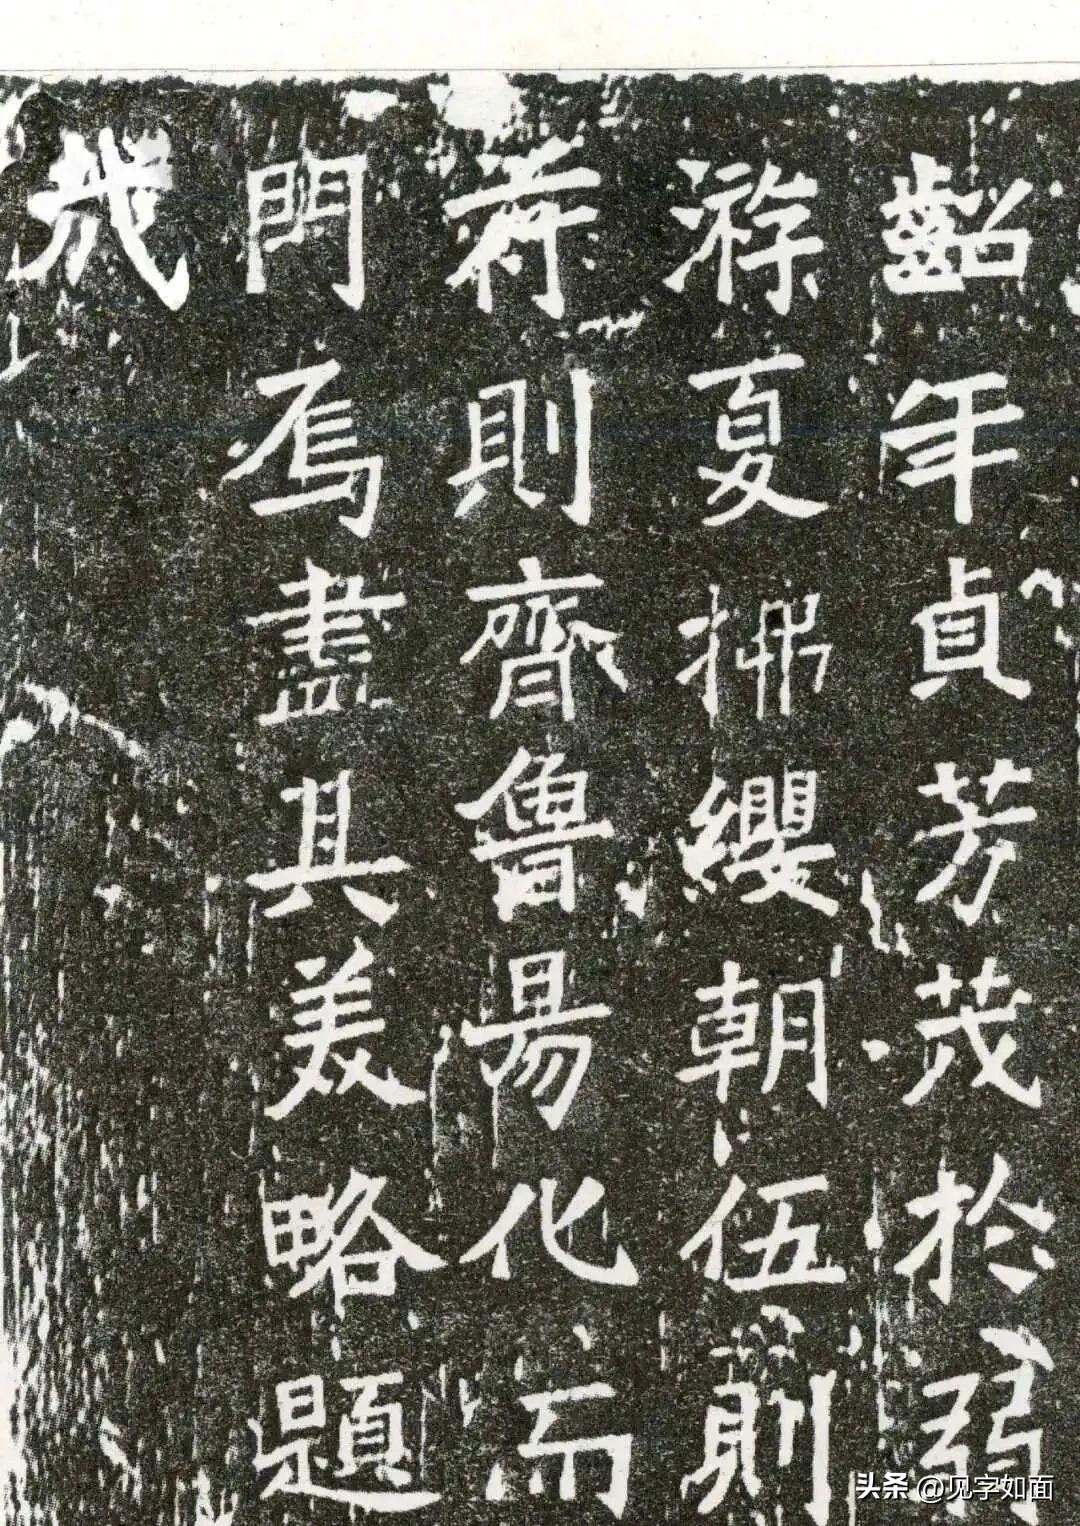 齠年貞芳茂於弱
游夏拂纓朝伍則
符則齊魯易化而
門焉盡其美略題
哉
头条 @见字如面